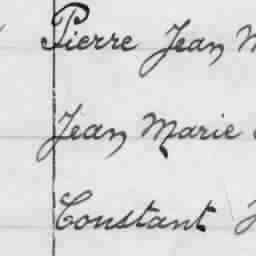 Pierre Jean M
Jean Marie
Constant J